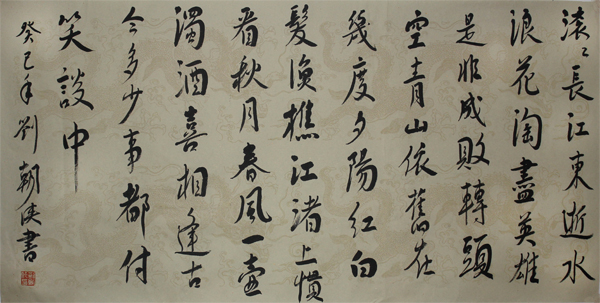 滚〻長江東逝水
浪花淘盡英雄
是非成敗轉頭
空青山依舊在
幾度夕陽紅白
髮漁樵江渚上慣
看秋月春風一壺
濁酒喜相逢古
今多少事都付
笑談中
癸巳年劉朝侠書